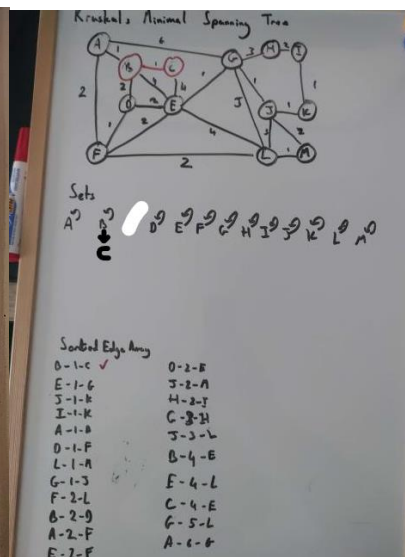 Kruskals Minimal Spanning Tree
A 6
1 B 1 C G 3 H 2 I
2 2 4 4 1 1 1
D 2 E 5 J 1 K
1 2 4 3 2
F 2 L 1 M
Sets
A B D E F G H I J K L M
C
Sorted Edge Array
B-1-C ✓
E-1-G
J-1-K
I-1-K
A-1-B
D-1-F
L-1-M
G-1-J
F-2-L
B-2-D
A-2-F
E-2-F
D-2-E
J-2-M
H-2-I
G-3-H
J-3-L
B-4-E
E-4-L
C-4-E
G-5-L
A-6-G